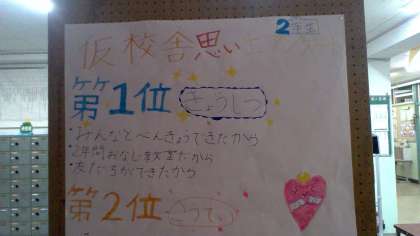 2年生
仮校舎思い
第1位 きょうしつ
・みんなとべんきょうできたから
・2年間おなじ教室だから
・友だちができたから
第2位 ろうか